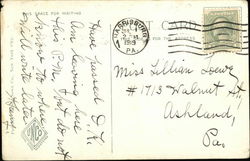 SPACE FOR WRITING
POST CARD
HARRISBURG
PA.
1919
Have passed D. L.
Am leaving here
this P.M. but do not
know to where
Will write later
Henry
Miss Lillian Loewy
#1713 Walnut St
Ashland,
Pa.